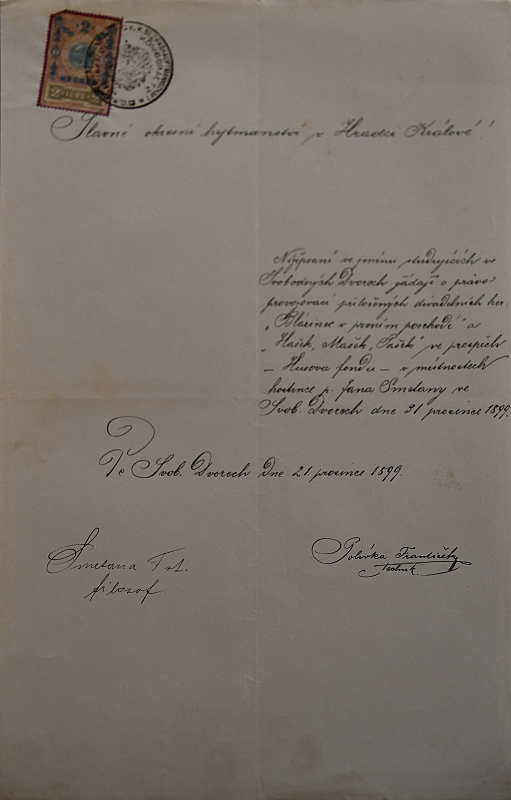 2
KRONEN
Slavné okresní hejtmanství v Hradci Králové!
Nížepsaní ve jménu studujících ve
Svobodných Dvorech žádají o právo
provozovací přiložených divadelních her:
„Blázinec v prvním poschodí“ a
„Hašek, Mašek, Pašek“ ve prospěch
– Husova fondu – v místnostech
hostince p. Jana Smetany ve
Svob. Dvorech dne 31 prosince 1899.
Ve Svob. Dvorech dne 21 prosince 1899.
Smetana Frt.
filosof.
Polívka František
technik.